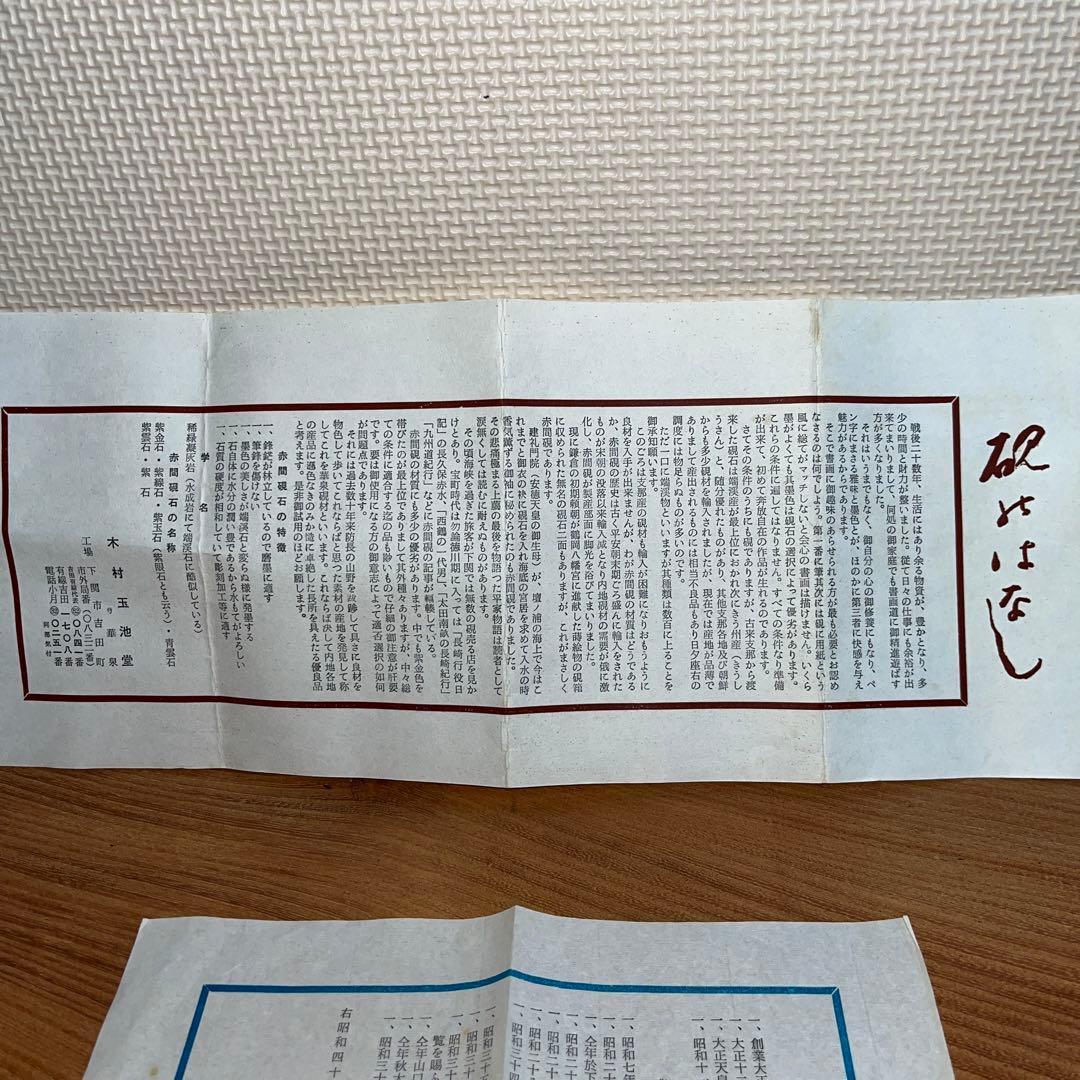 硯のはなし
戦後二十数年、生活にはあり余る物質が、豊かとなり、多
少の時間と財力が整いました。従て日々の仕事にも余裕が出
来てまいりまして、何処の御家庭でも書画道に御精進遊ばす
方が多くなりました。
それはいうまでもなく、御自分の心の御修養にもなり、ペ
ン字にまさる雅味と墨色とが、ほのかに第三者に快感を与え
魅力があるからであります。
そこで書画に御趣味のあらせられる方が最も必要とお認め
なさるのは何でしよう。第一番に筆其次には硯に用紙という
風に総てがマッチしないと会心の書画は描けません。いくら
墨がよくても其墨色は硯石の選択によって優劣があります。
これらの条件に適してはなりません。すべての条件なり準備
が出来て、初めて奔放自在の作品が生れるのであります。
さてその条件のうちにも硯でありますが、古来支那から渡
来した硯石は端渓産が最上位におかれ次にきう州産（きうし
うさん）と、随分優れたものがあり、其他支那各地及び朝鮮
からも多少硯材を輸入されましたが、現在では産地が品薄で
ありまして産出されるものには相当不良品もあり日夕座右の
調度には物足らぬものが多いのです。
ただ一口に端渓物といいますが其種類は数百に上ることを
御承知願います。
このごろは支那産の硯材も輸入が困難になりおもうように
良材を入手が出来ませんが、わが赤間硯の材質はどうである
か、赤間硯の歴史は古く平安朝末期ごろ盛んに輸入をされた
ものが宋朝の没落以来輸入減となり内地硯材の需要が俄に激
化し、赤間硯が製産部面に脚光を浴びてまいりました。
現に鎌倉の初期源頼朝が鶴岡八幡宮に進献した蒔絵物の硯箱
に収められた無名の硯石二面もありますが、これがまさしく
赤間硯であります。
建礼門院（安徳天皇の御生母）が、壇ノ浦の海上で今はこ
れまでと御衣の袂に硯石を入れ海底の宮居を求めて入水の時
香気薫ずる御袖に秘められたのも赤間硯でありました。
その悲痛極まる上臈の最後を物語った平家物語は読者として
涙無くしては読むに耐えぬものがあります。
その頃海峡を過ぎた旅客が下関では無数の硯売る店を見か
けとあり。宝町時代は勿論徳川期に入っては「長崎行役日
記」の長久保赤水、「西鶴の一代男」、「太田南畝の長崎紀行」
「九州道紀行」などに赤間硯の記事が輻輳している。
赤間硯の材質にも多少の優劣があります。中でも紫金色を
帯びたのが最上位でありまして其外種々ありますが、中々総
ての条件に適合する迄の品も尠いもので仔細の御注意が肝要
です。要は御使用になる方の御意志によって適否選択の如何
が問題点であります。
それには過去数十年来防長の山野を跋跡して具さに良材を
物色して歩いてこれならばと思つた素材の産地を発見して称
してこれを華泉硯材といいます。これならば決して内地各地
の産品に遜色なきのみか濤に卓絶した長所を具えたる優良品
と考えます。是非御試用のほどお願します。
赤間硯石の特徴
一、鋒鋩が林立しているので磨墨に適す
一、筆鋒を傷けない
一、墨色の美しさが端渓石と変らぬ様に発墨する
一、石自体に水分の潤い豊であるから水もてがよろしい
一、石質の硬度が相和していていて彫刻加工等に適す
学名
稀緑凝灰岩（水成岩にて端渓石に酷似している）
赤間硯石の名称
紫金石・紫線石・紫玉石（紫眼石とも云う）・青雲石
紫雲石・紫石
木村玉池堂
号 華泉
工場 下関市吉田町
市外局番（〇八三二）
有線吉田 一七〇八番
電話小月 〇二五一番
一、創業大正
一、大正十二
一、大正天皇
一、昭和十
一、昭和七年
一、仝年於下
一、昭和二十
一、昭和二十
一、昭和二十
一、昭和三十四
一、昭和三十五
一、昭和三十
一、昭和三十
覧を賜ら
一、仝年山口
一、仝年秋
一、昭和三十
右昭和四十